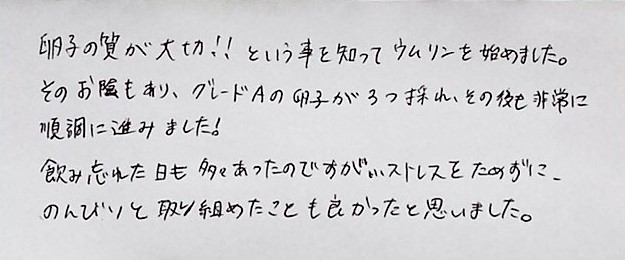 卵子の質が大切!!という事を知ってウムリンを始めました。
そのお陰もあり、グレードAの卵子が3つ採れ、その後も非常に
順調に進みました!
飲み忘れた日も多々あったのですがストレスをためずに、
のんびりと取り組めたことも良かったと思いました。